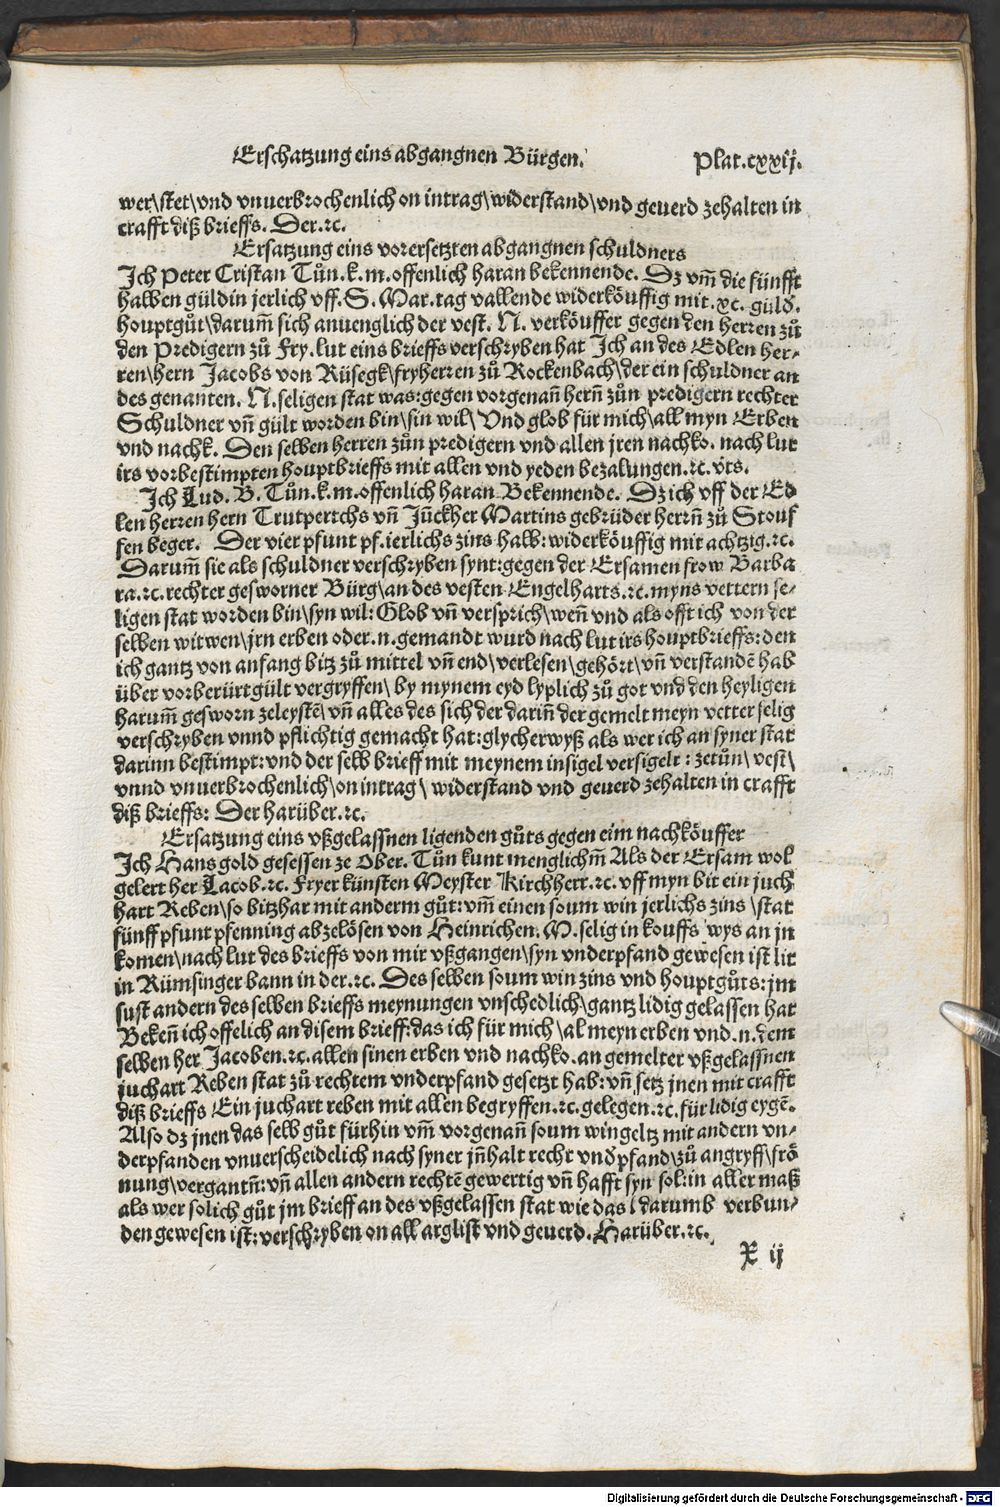 Erschatzung eins abgangnen Bürgen. Plat.cxxij.
wer\stet\vnd vnuerbrochenlich on intrag\widerstand\vnd geuerd zehalten in
crafft diß brieffs. Der.⁊c.
Ersatzung eins vorersetzten abgangnen schuldners
Ich Peter Cristan Tůn.k.m.offenlich haran bekennende. Dz vm̄ die fünfft
halben güldin jerlich vff.S.Mar.tag vallende widerköuffig mit.xc.güld̄.
houptgůt\darum̄ sich anuenglich der vest. N. verköuffer gegen den herren zů
den Predigern zů Fry.lut eins brieffs verschryben hat Ich an des Edlen her-
ren\hern Jacobs von Rüsegk\fryherren zů Rockenbach\der ein schuldner an
des genanten. N.seligen stat was:gegen vorgenan̄ hern̄ zůn predigern rechter
Schuldner vn̄ gült worden bin\sin wil\ Vnd glob für mich\all myn Erben
vnd nachk. Den selben herren zůn predigern vnd allen jren nachko. nach lut
irs vorbestimpten houptbrieffs mit allen vnd yeden bezalungen.⁊c.vts.
Ich Lud. B. Tůn.k.m.offenlich haran Bekennende. Dz ich vff der Ed
len herren hern Trutpertchs vn̄ Jūckher Martins gebrüder herrn̄ zů Stouf
fen beger. Der vier pfunt pf.ierlichs zins halb:widerköuffig mit achtzig.⁊c.
Darum̄ sie als schuldner verschryben synt:gegen der Ersamen frow Barba
ra.⁊c.rechter gesworner Bürg\an des vesten Engelharts.⁊c.myns vettern se-
ligen stat worden bin\syn wil: Glob vn̄ versprich\wen̄ vnd als offt ich von der
selben witwen\jrn erben oder.n.gemandt wurd nach lut irs houptbrieffs:den
ich gantz von anfang bitz zů mittel vn̄ end\verlesen\gehört\vn̄ verstandē hab
über vorberürt gült vergryffen\ by mynem eyd lyplich zů got vnd den heyligen
harum̄ gesworn zeleystē\ vn̄ alles des sich der darin̄ der gemelt meyn vetter selig
verschryben vnnd pflichtig gemacht hat:glycherwyß als wer ich an syner stat
darinn bestimpt:vnd der selb brieff mit meynem insigel versigelt : zetůn\ vest\
vnnd vnuerbrochenlich\on intrag\ widerstand vnd geuerd zehalten in crafft
diß brieffs: Der harüber.⁊c.
Ersatzung eins vßgelassnen ligenden gůts gegen eim nachköuffer
Ich Hans gold gesessen ze Ober. Tůn kunt menglichm̄ Als der Ersam wol
gelert her Iacob.⁊c. Fryer künsten Meyster Kirchherr.⁊c. vff myn bit ein juch
hart Reben\so bitzhar mit anderm gůt:vm̄ einen soum win jerlichs zins \stat
fünff pfunt pfenning abzelösen von Heinrichen. M.selig in kouffs wys an jn
komen\nach lut des brieffs von mir vßgangen\syn vnderpfand gewesen ist lit
in Rümsinger bann in der.⁊c. Des selben soum win zins vnd houptgůts:jm
sust andern des selben brieffs meynungen vnschedlich\gantz lidig gelassen hat
Beken̄ ich offelich an disem brieff.das ich für mich \al meyn erben vnd.n.dem
selben her Jacoben.⁊c.allen sinen erben vnd nachko.an gemelter vßgelassnen
juchart Reben stat zů rechtem vnderpfand gesetzt hab:vn̄ setz jnen mit crafft
diß brieffs Ein juchart reben mit allen begryffen.⁊c.gelegen.⁊c.für lidig eygē.
Also dz jnen das selb gůt fürhin vm̄ vorgenan̄ soum wingeltz mit andern vn-
derpfanden vnuerscheidelich nach syner jn̄halt recht vnd̄pfand\zů angryff\frö
nung\vergantn̄:vn̄ allen andern rechtē gewertig vn̄ hafft syn sol:in aller maß
als wer solich gůt jm brieff an des vßgelassen stat wie das \ darumb verbun-
den gewesen ist:verschryben on all arglist vnd geuerd. Harüber.⁊c.
X ij
Digitalisierung gefördert durch die Deutsche Forschungsgemeinschaft - DFG